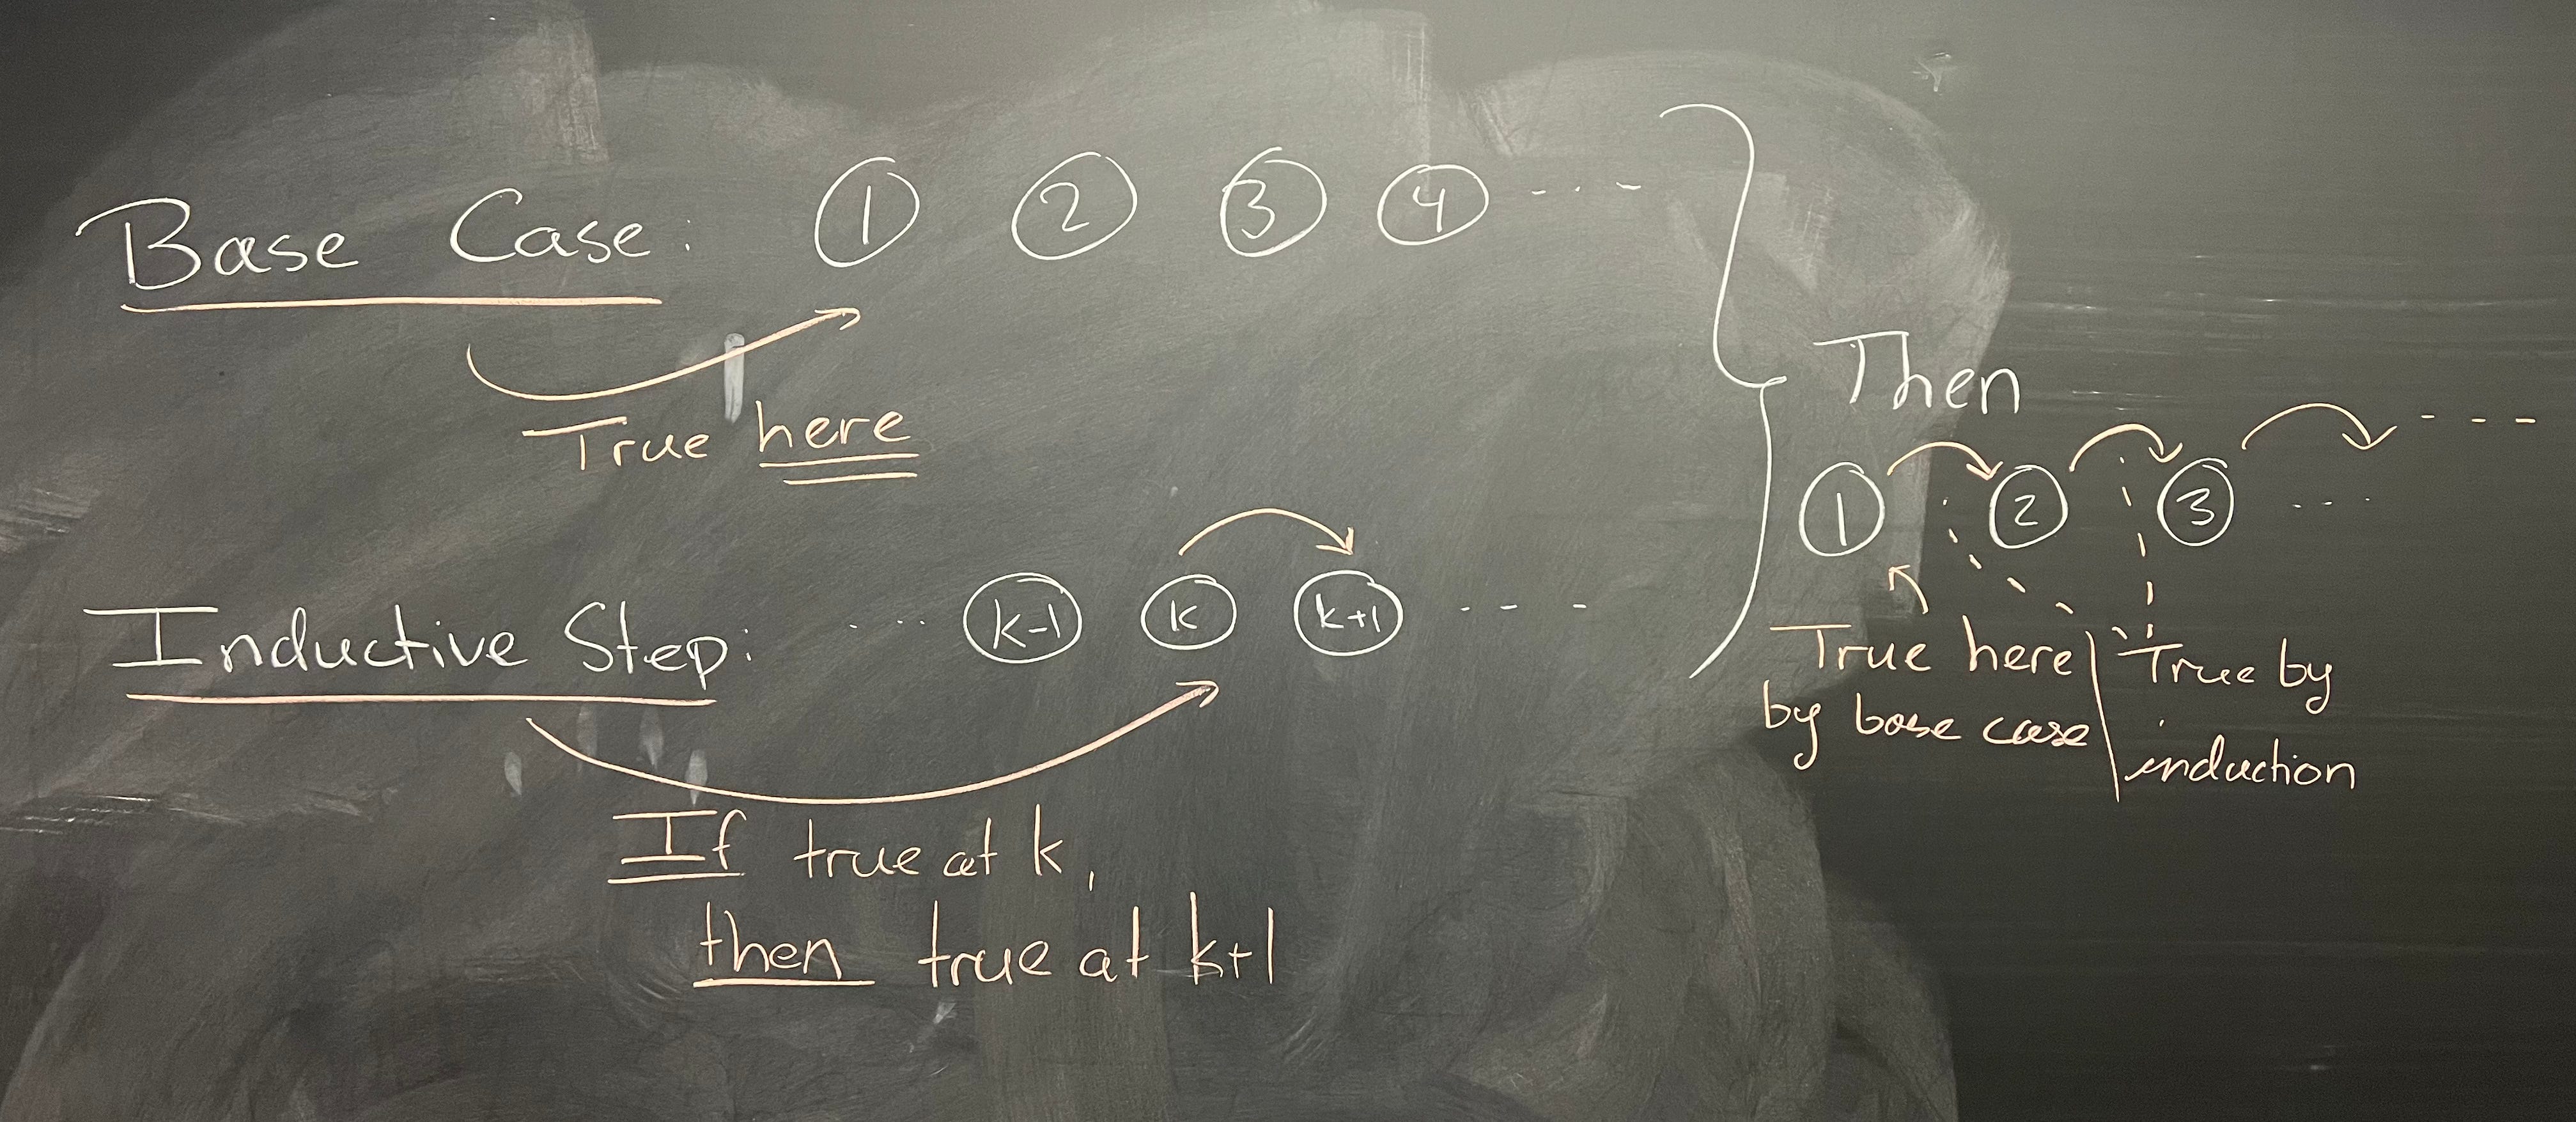 Base Case: 1 2 3 4 ...
True here
Inductive Step: .... k-1 k k+1 ...
If true at k,
then true at k+1
Then
1 2 3 ...
True here
by base case
True by
induction